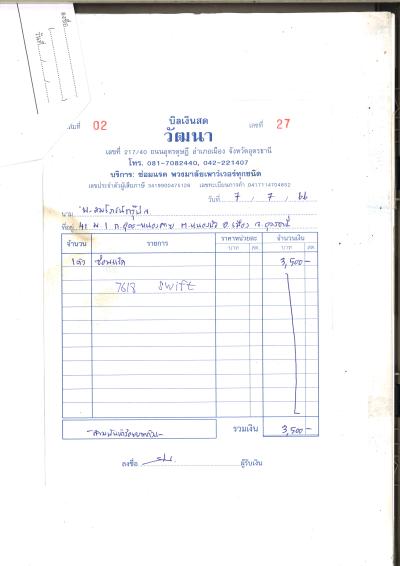 ลงชื่อ
วันที่
บิลเงินสด
เล่มที่ 02 เลขที่ 27
วัฒนา
เลขที่ 217/40 ถนนอุทรดุษฎี อำเภอเมือง จังหวัดอุดรธานี
โทร. 081-7082440, 042-221407
บริการ: ซ่อมแรค พวงมาลัยเพาว์เวอร์ทุกชนิด
เลขประจำตัวผู้เสียภาษี 3419900475126 เลขทะเบียนการค้า 0417114704852
วันที่ 7 / 7 / 66
นาม
ที่อยู่ 42 ม 1 ถ.อุดร-หนองคาย ต.หมากแข้ง อ.เมือง จ.อุดรธานี
จำนวน รายการ ราคาหน่วยละ จำนวนเงิน
บาท สต. บาท สต.
1 ตัว ซ่อมแร็ค 3,500-
7618 SWIFT
-สามพันห้าร้อยบาทถ้วน- รวมเงิน 3,500-
ลงชื่อ ผู้รับเงิน